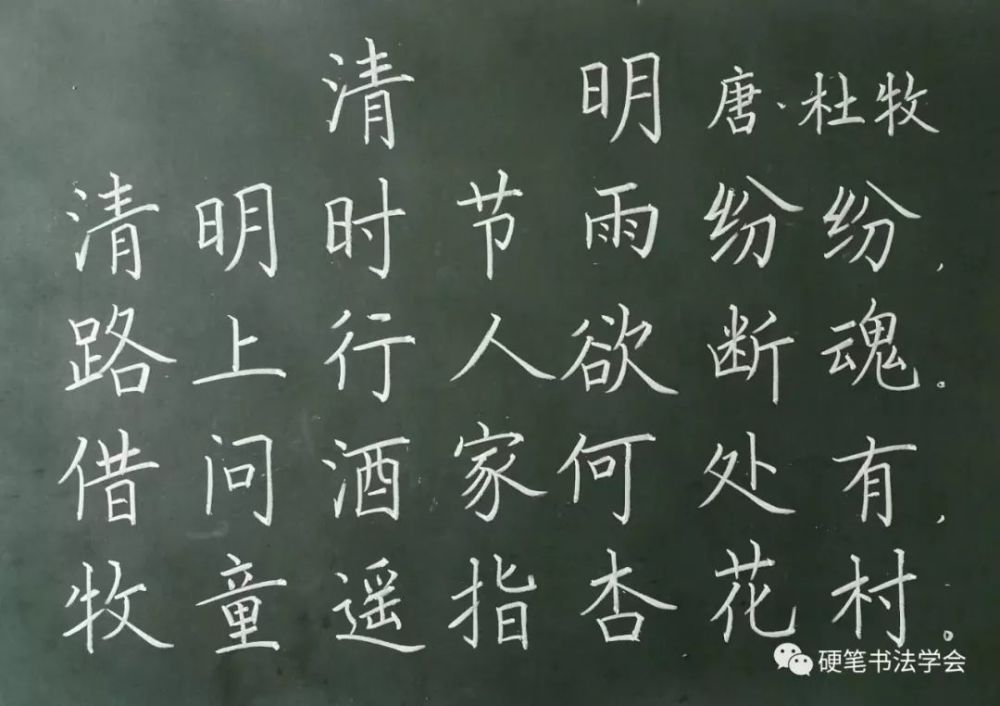 清 明 唐·杜牧
清明时节雨纷纷，
路上行人欲断魂。
借问酒家何处有，
牧童遥指杏花村。
硬笔书法学会